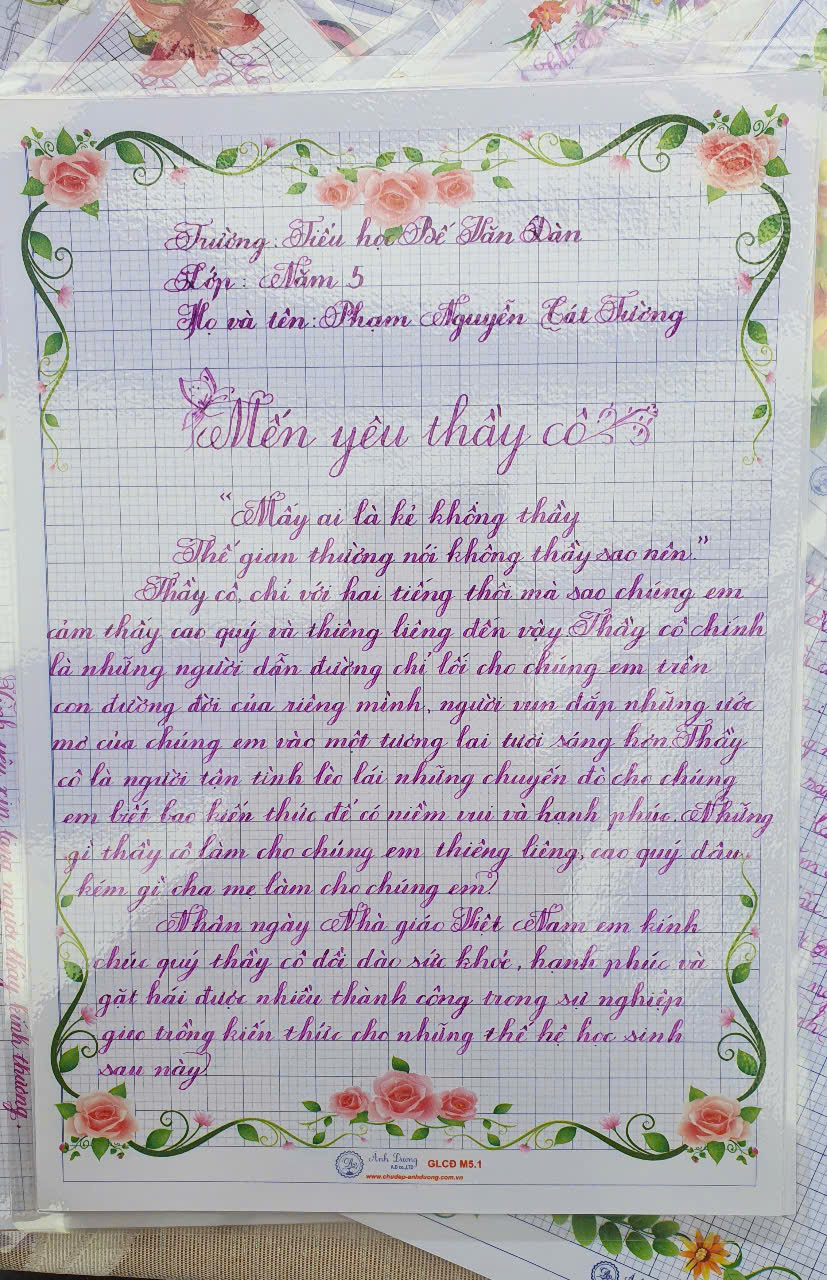 Trường: Tiểu học Bế Văn Đàn
Lớp: Năm 5
Họ và tên: Phạm Nguyễn Cát Tường
Mến yêu thầy cô
"Mấy ai là kẻ không thầy
Thế gian thường nói không thầy sao nên."
Thầy cô, chỉ với hai tiếng thôi mà sao chúng em
cảm thấy cao quý và thiêng liêng đến vậy. Thầy cô chính
là những người dẫn đường chỉ lối cho chúng em trên
con đường đời của riêng mình, người vun đắp những ước
mơ của chúng em vào một tương lai tươi sáng hơn. Thầy
cô là người tận tình lèo lái những chuyến đò cho chúng
em biết bao kiến thức để có niềm vui và hạnh phúc. Những
gì thầy cô làm cho chúng em thiêng liêng, cao quý đâu
kém gì cha mẹ làm cho chúng em!
Nhân ngày Nhà giáo Việt Nam em kính
chúc quý thầy cô dồi dào sức khoẻ, hạnh phúc và
gặt hái được nhiều thành công trong sự nghiệp
gieo trồng kiến thức cho những thế hệ học sinh
sau này!
Anh Dương
GLCĐ M5.1
www.chudep-anhduong.com.vn